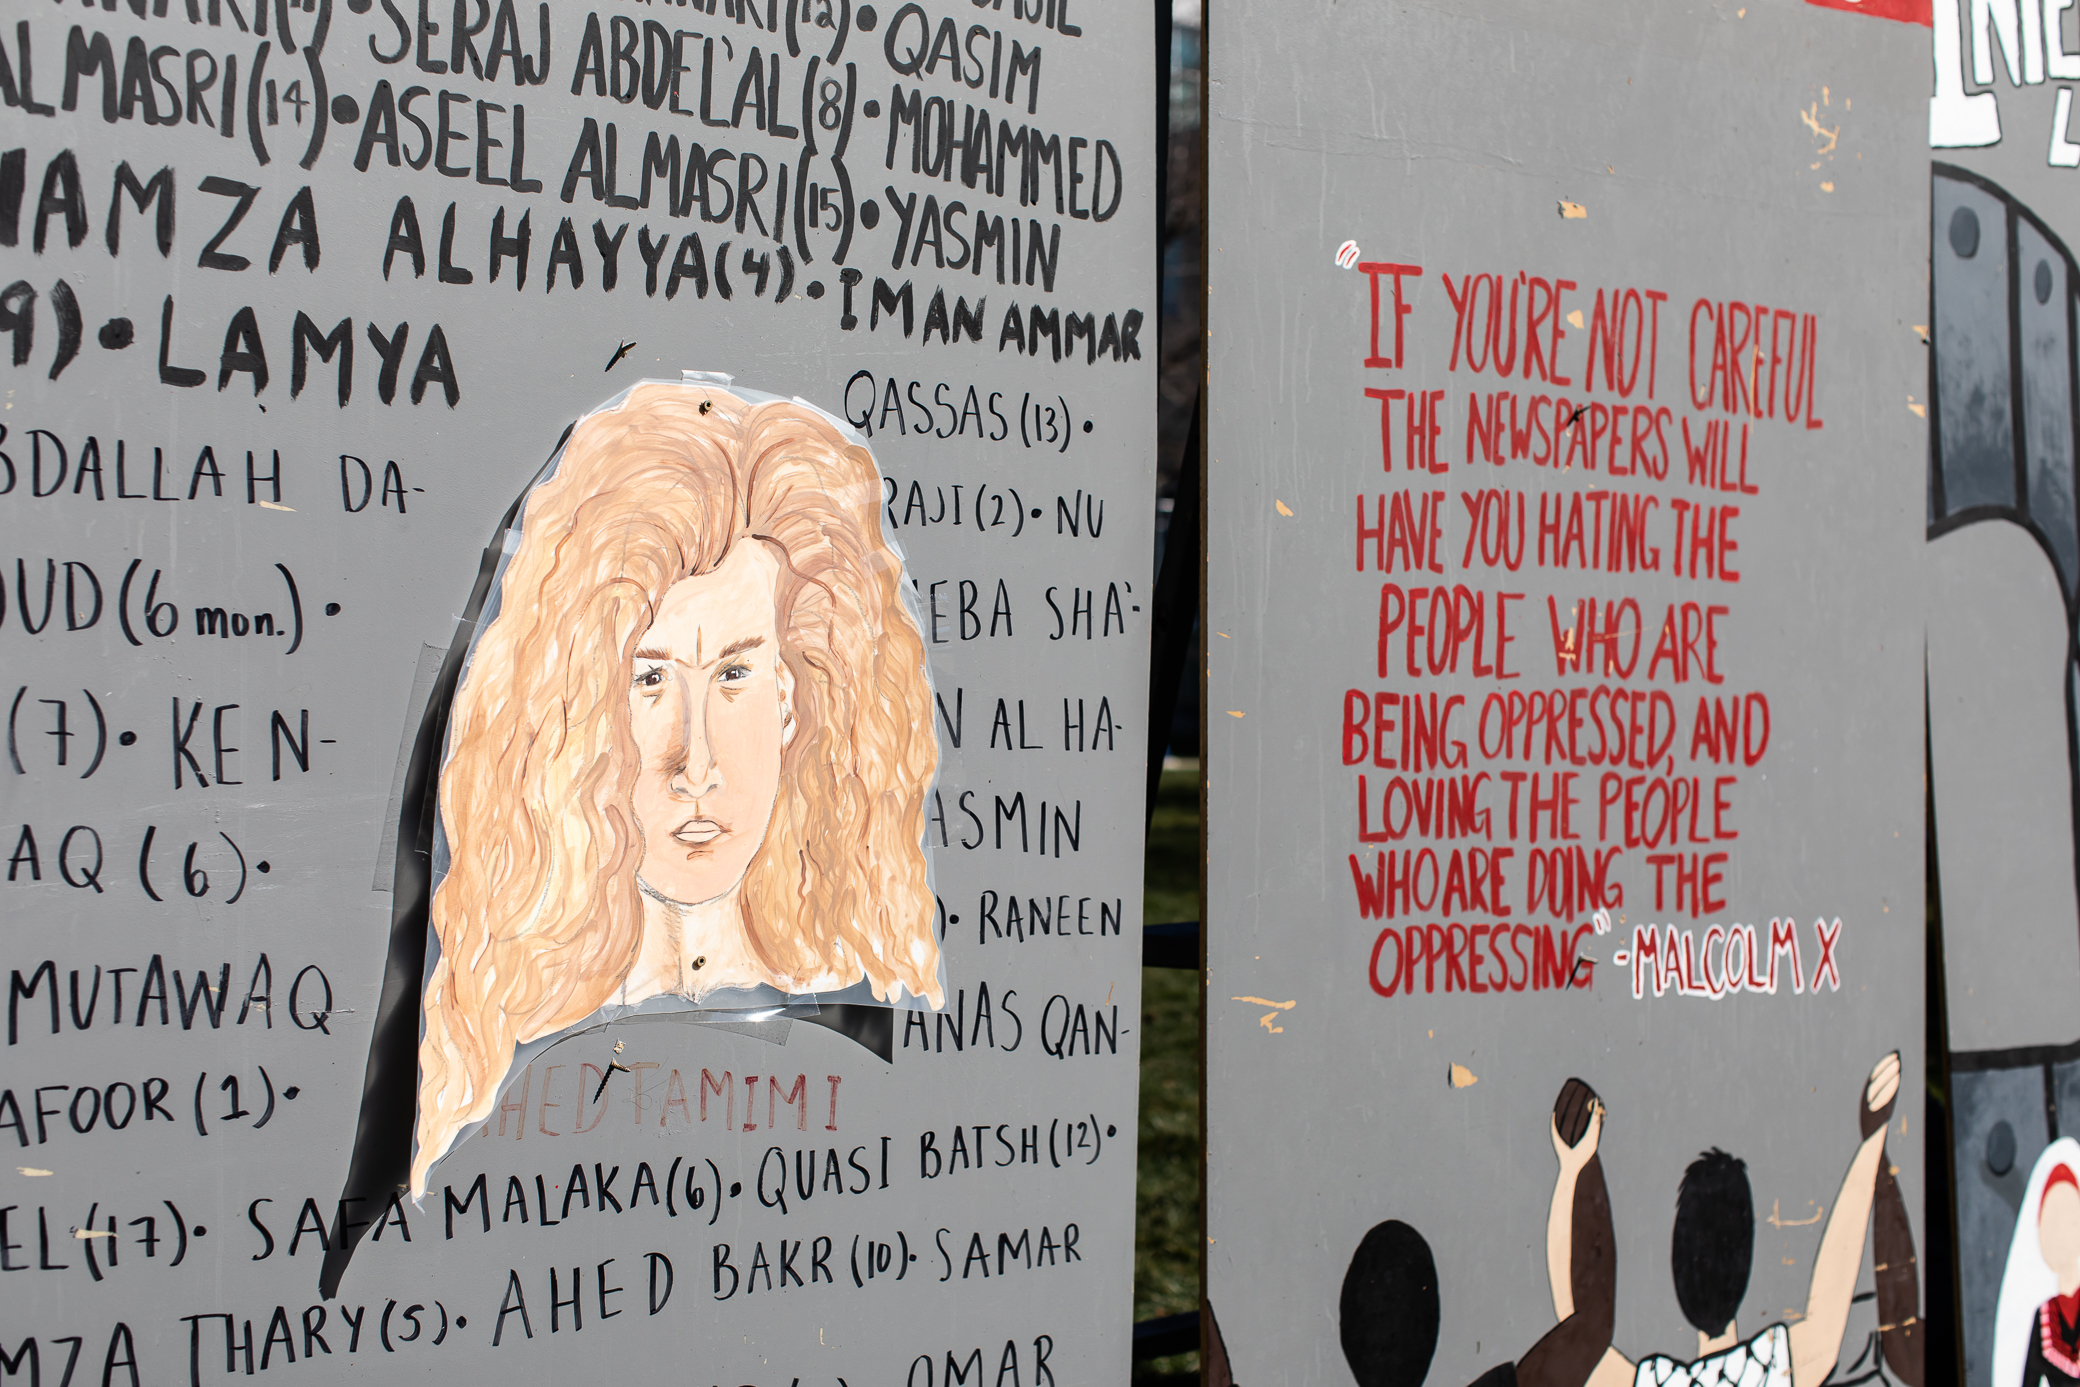 SERAJ ABDEL'AL (8) • QASIM
ALMASRI (14) • ASEEL ALMASRI (15) • MOHAMMED
HAMZA ALHAYYA (4) • YASMIN
9) • LAMYA
IMAN AMMAR
QASSAS (13) •
BDALLAH DA-
RAJI (2) • NU
OUD (6 mon.) •
EBA SHA'-
(7) • KEN-
N AL HA-
AQ (6) •
ASMIN
MUTAWAQ
) • RANEEN
AFOOR (1) •
ANAS QAN-
AHED TAMIMI
EL (17) • SAFA MALAKA (6) • QUASI BATSH (12) •
MZA THARY (5) • AHED BAKR (10) • SAMAR
OMAR
"IF YOU'RE NOT CAREFUL
THE NEWSPAPERS WILL
HAVE YOU HATING THE
PEOPLE WHO ARE
BEING OPPRESSED, AND
LOVING THE PEOPLE
WHO ARE DOING THE
OPPRESSING" - MALCOLM X